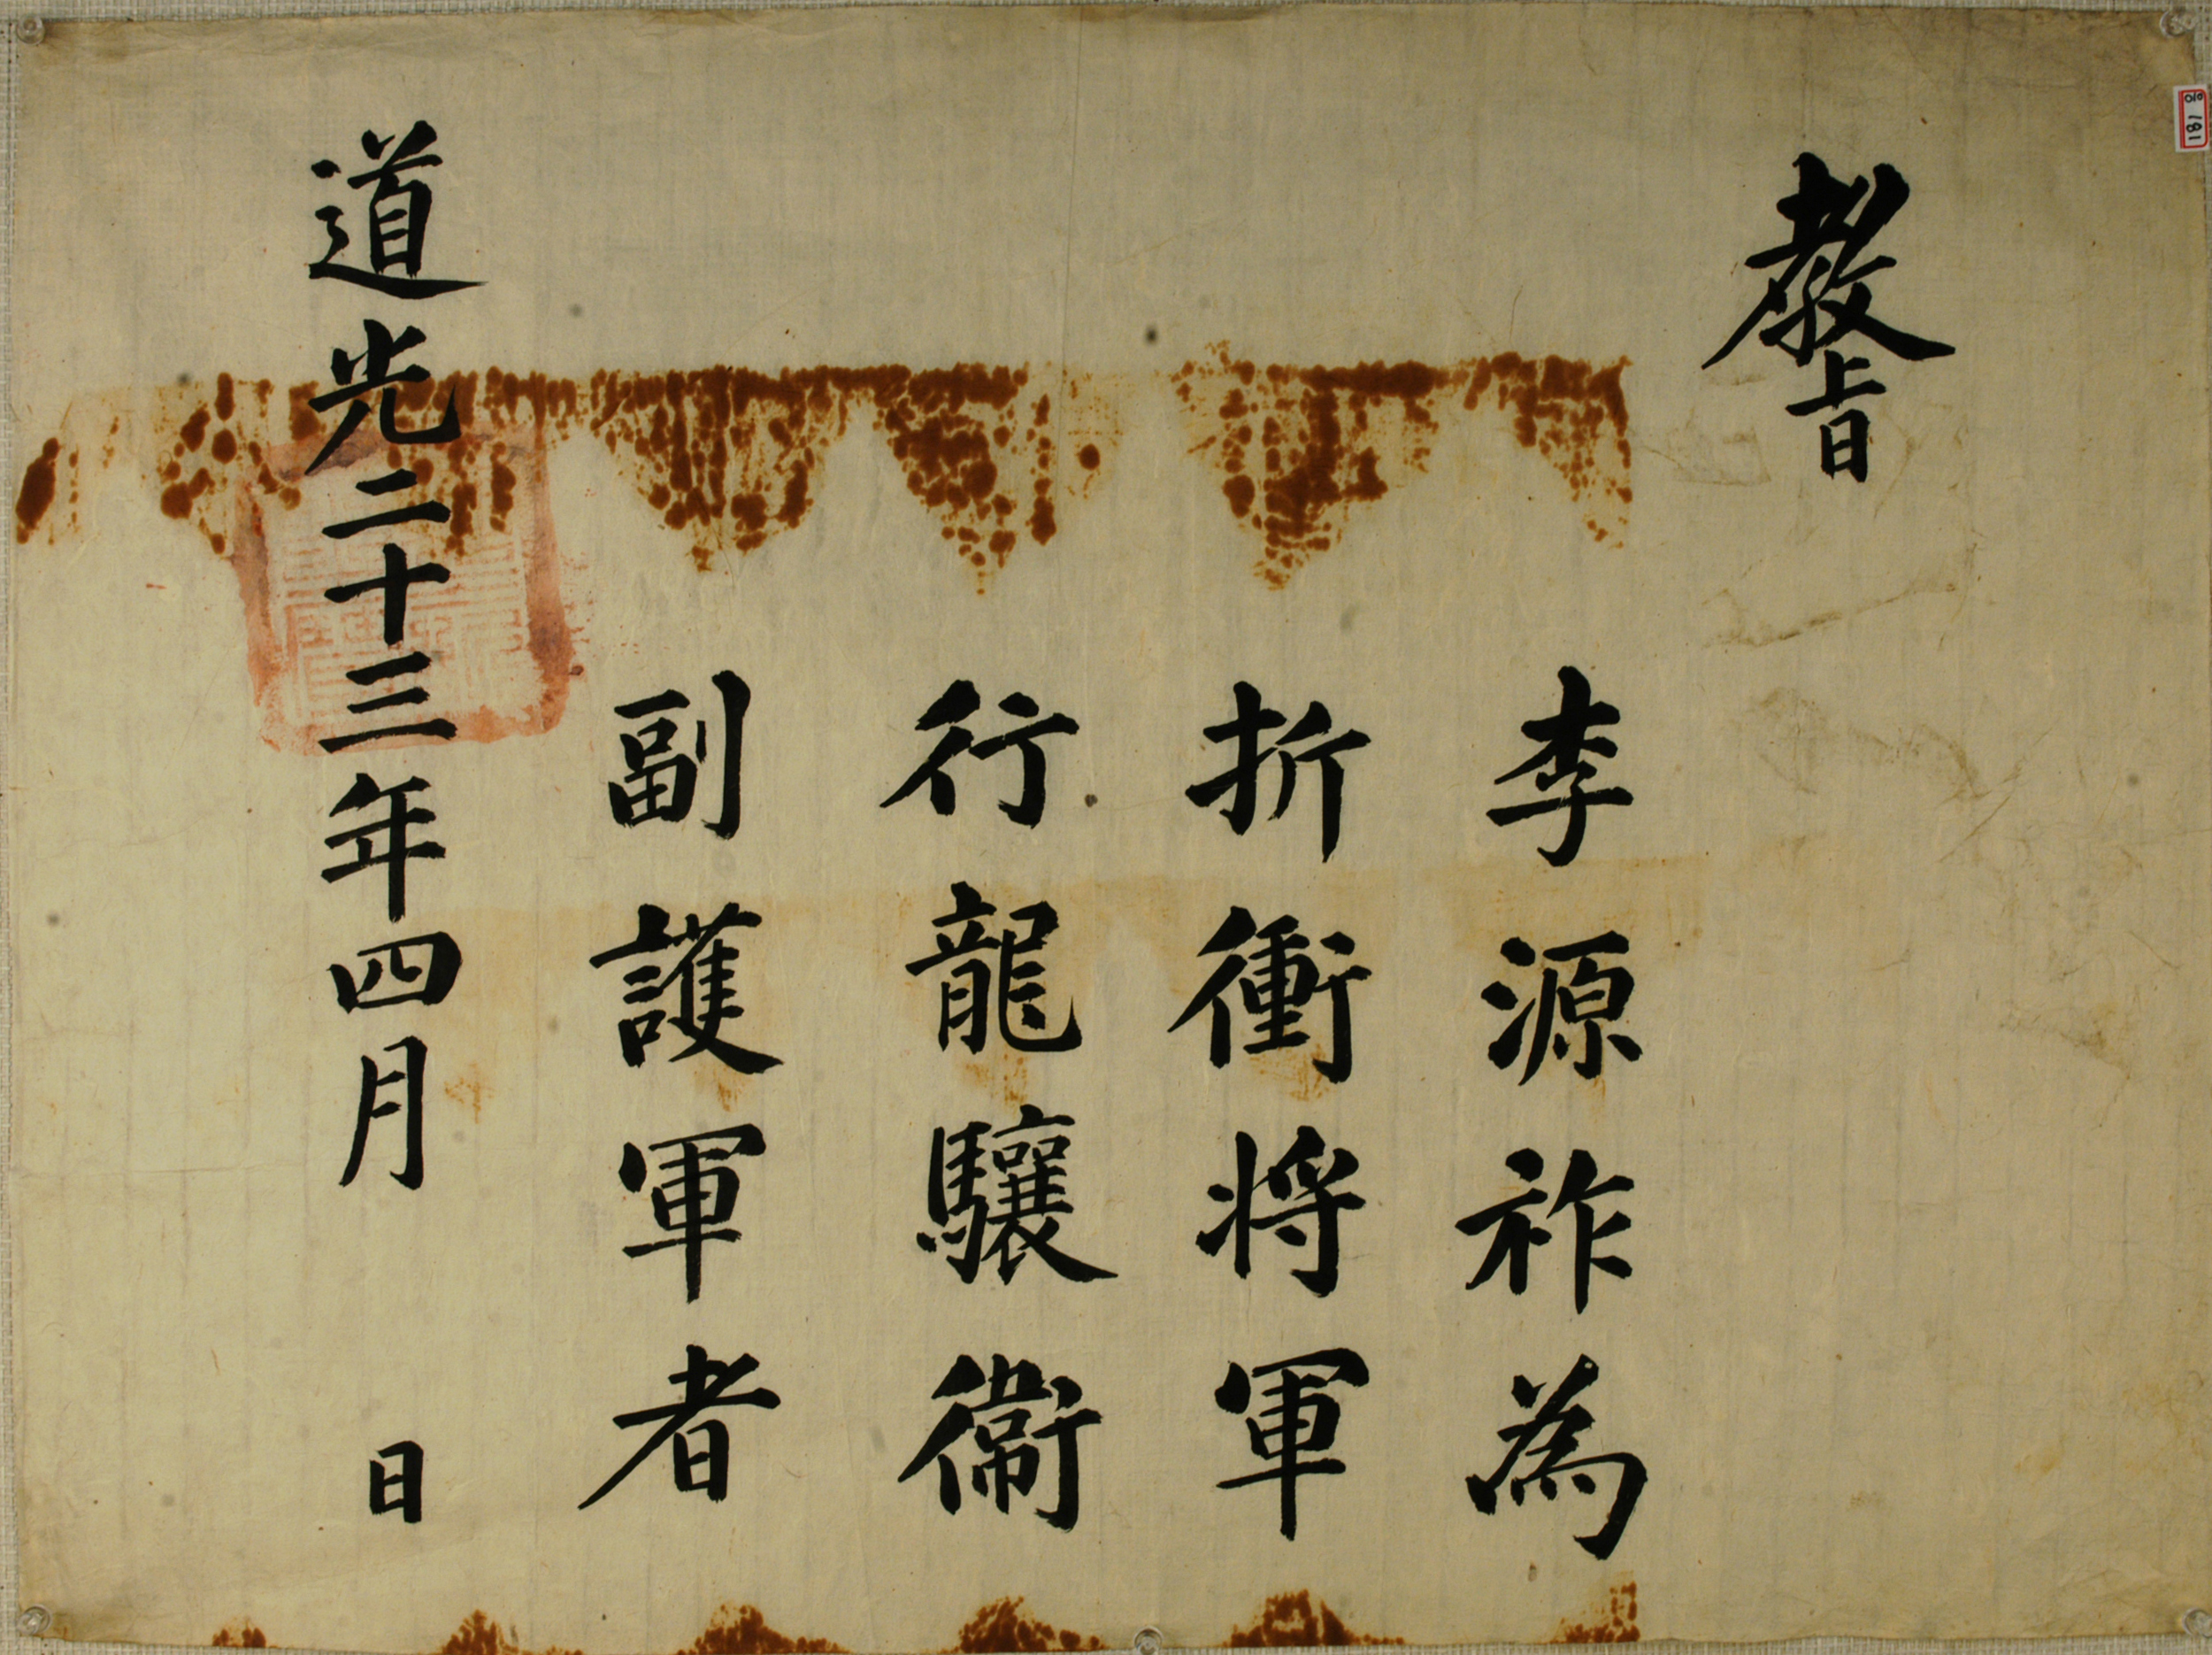 教旨
李源祚為
折衝将軍
行龍驤衛
副護軍者
道光二十三年四月 日
010 181